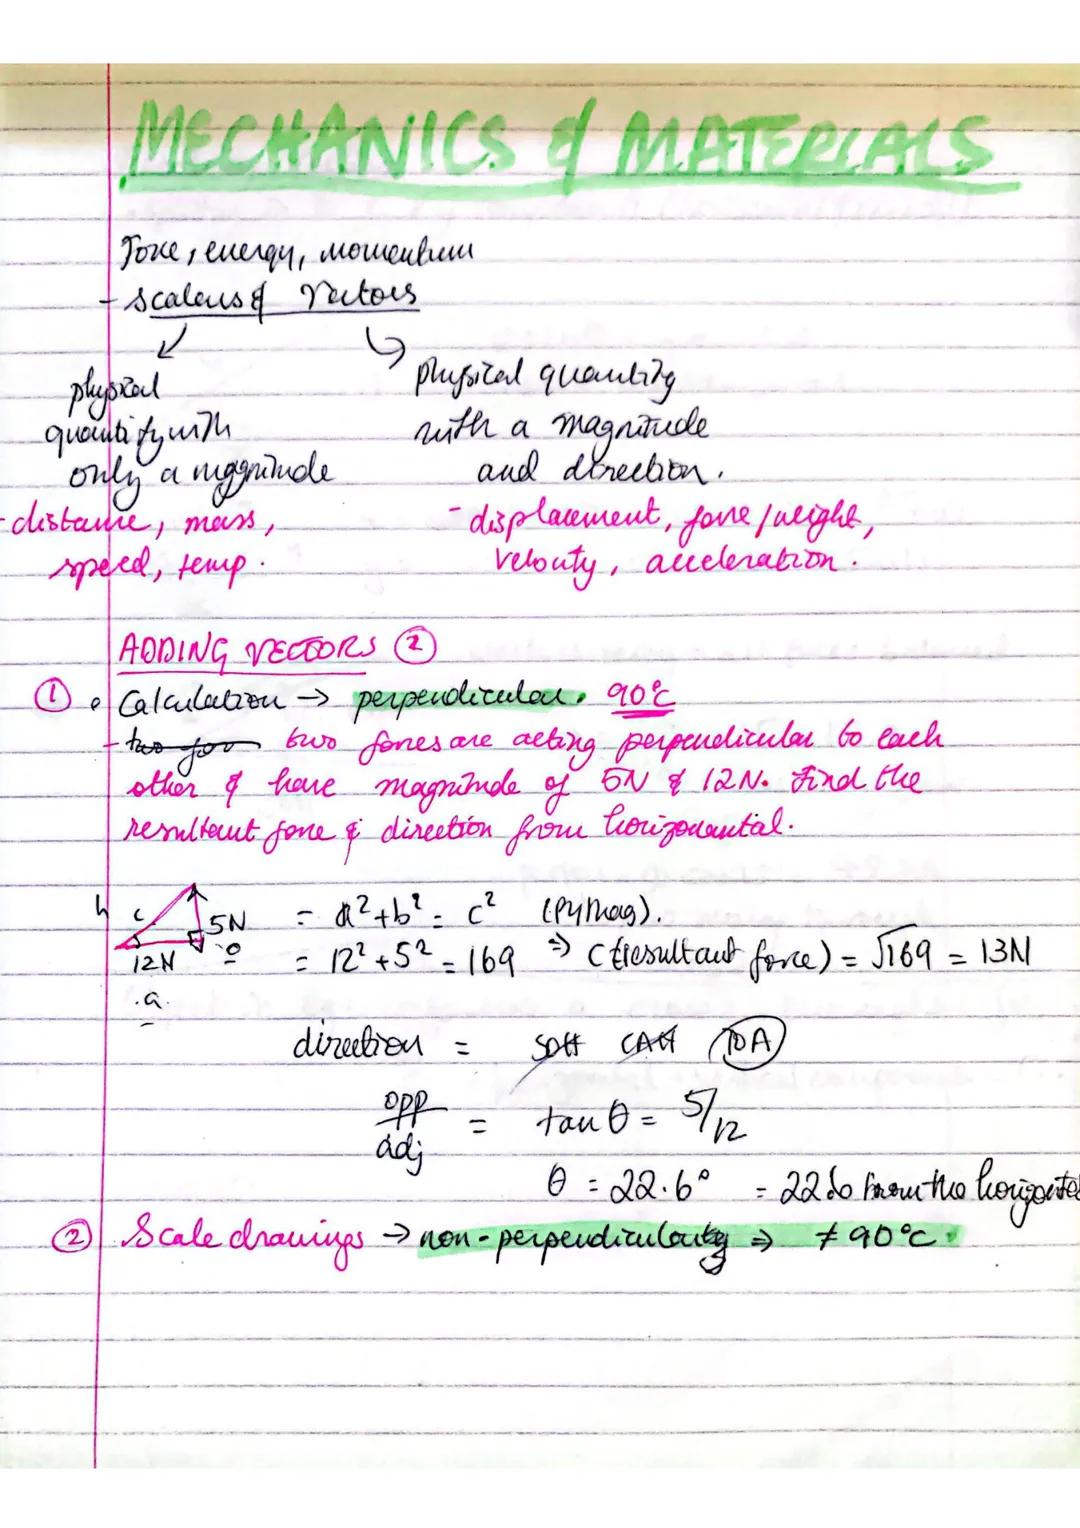 MECHANICS & MATERIALS
Force, energy, momentum
- scalers & Vectors
physical
quantity with
only a magnitude
- distance, mass,
speed, temp.
physical quantity
with a magnitude
and direction.
- displacement, force/weight,
velocity, acceleration.
ADDING VECTORS ②
① • Calculation → perpendicular. 90°c
- two for two forces are acting perpendicular to each
other & have magnitude of 5N & 12N. Find the
resultant force & direction from horizonantal.
h c 5N o
12N
a.
= a²+b² = c² (pythag).
= 12² + 5² = 169 ⇒ C (resultant force) = √169 = 13N
direction = SOH CAH TOA
opp/adj = tan θ = 5/12
θ = 22.6° = 22.6 from the horizontal
② Scale drawings → non-perpendicularity ⇒ ≠ 90°c.